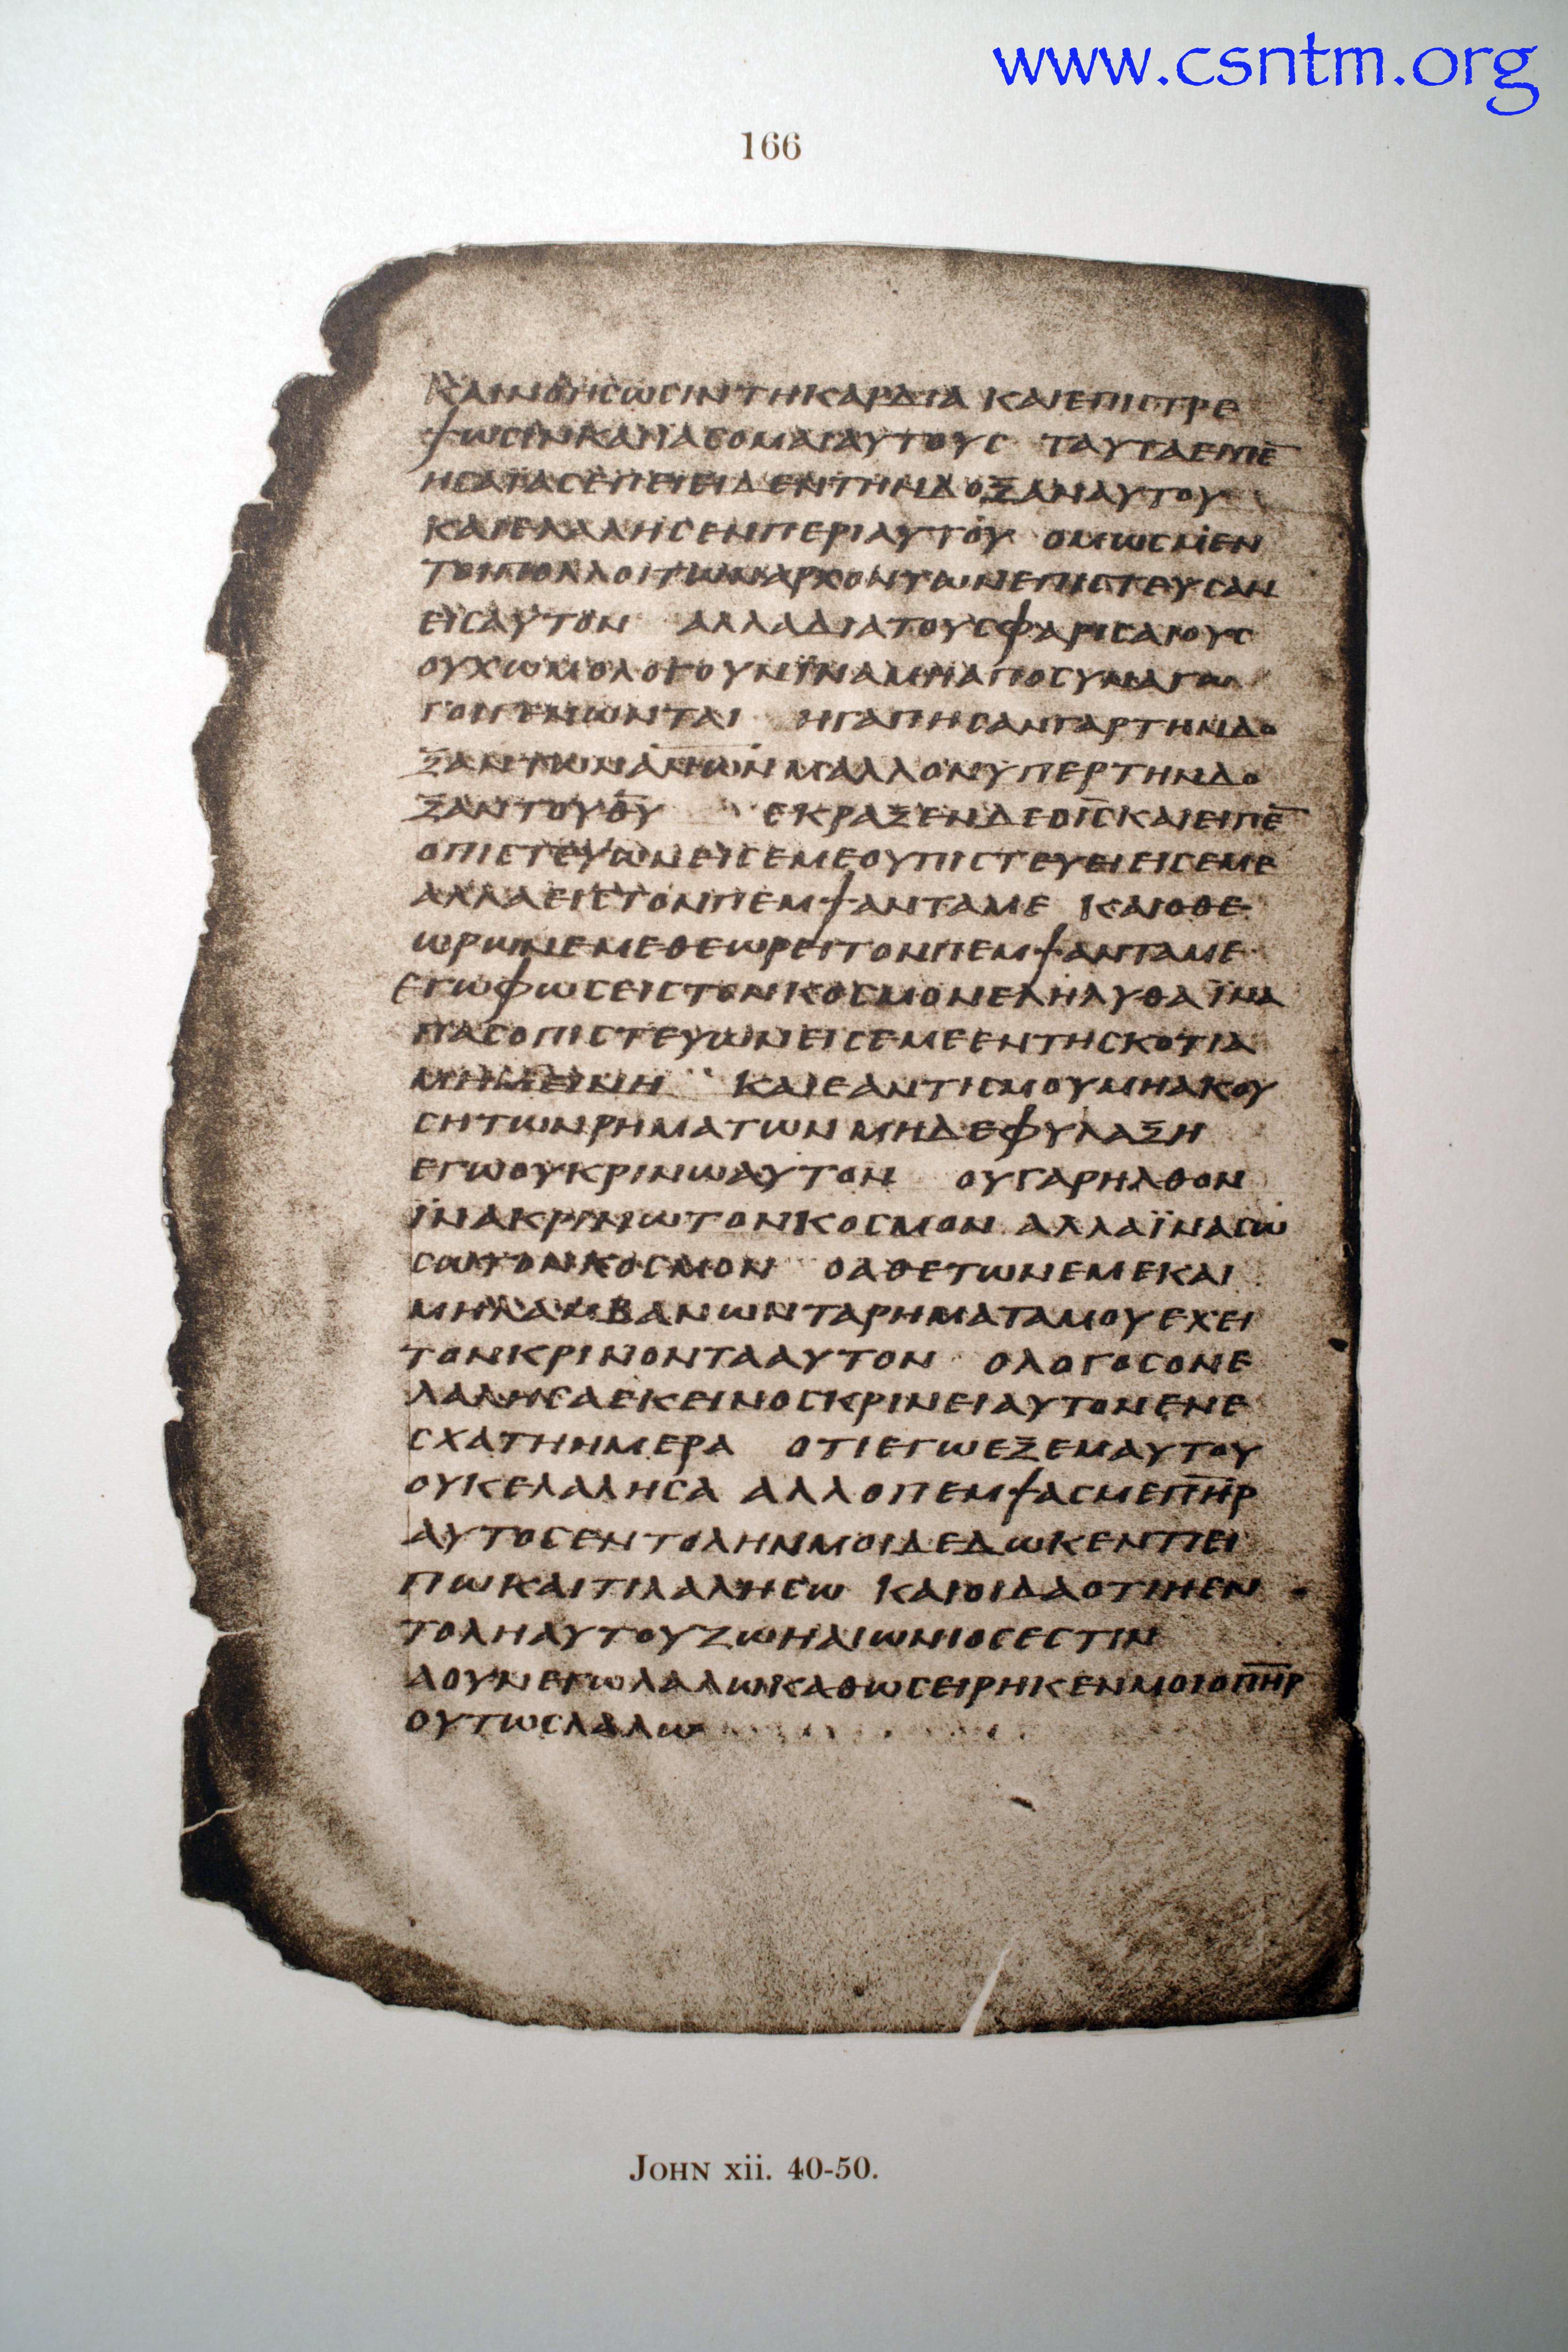 www.csntm.org
166
ΚΑΙΝΟΗСωСΙΝΤΗΚΑΡΔΙΑ ΚΑΙΕΠΙСΤΡΕ
ΨωСΙΝΚΑΙΙΑСΟΜΑΙΑΥΤΟΥС ΤΑΥΤΑΕΙΠΕ̅
ΗСΑΪΑСΕΠΕΙΕΙΔΕΝΤΗΝΔΟΞΑΝΑΥΤΟΥ
ΚΑΙΕΛΑΛΗСΕΝΠΕΡΙΑΥΤΟΥ ΟΜωСΜΕΝ
ΤΟΙΠΟΛΛΟΙΤωΝΑΡΧΟΝΤωΝΕΠΙСΤΕΥСΑΝ
ΕΙСΑΥΤΟΝ ΑΛΛΑΔΙΑΤΟΥСΦΑΡΙСΑΙΟΥС
ΟΥΧωΜΟΛΟΓΟΥΝΪΝΑΜΗΑΠΟСΥΝΑΓω
ΓΟΙΓΕΝωΝΤΑΙ ΗΓΑΠΗСΑΝΓΑΡΤΗΝΔΟ
ΞΑΝΤωΝΑ̅Ν̅ω̅Ν̅ΜΑΛΛΟΝΥΠΕΡΤΗΝΔΟ
ΞΑΝΤΟΥΘ̅Υ̅ ΕΚΡΑΞΕΝΔΕΟΙ̅С̅ΚΑΙΕΙΠΕ̅
ΟΠΙСΤΕΥωΝΕΙСΕΜΕΟΥΠΙСΤΕΥΕΙΕΙСΕΜΕ
ΑΛΛΑΕΙСΤΟΝΠΕΜΨΑΝΤΑΜΕ ΚΑΙΟΘΕ
ωΡωΝΕΜΕΘΕωΡΕΙΤΟΝΠΕΜΨΑΝΤΑΜΕ
ΕΓωΦωСΕΙСΤΟΝΚΟСΜΟΝΕΛΗΛΥΘΑΪΝΑ
ΠΑСΟΠΙСΤΕΥωΝΕΙСΕΜΕΕΝΤΗСΚΟΤΙΑ
ΜΗΜΕΙΝΗ ΚΑΙΕΑΝΤΙСΜΟΥΜΗΑΚΟΥ
СΗΤωΝΡΗΜΑΤωΝΜΗΔΕΦΥΛΑΞΗ
ΕΓωΟΥΚΡΙΝωΑΥΤΟΝ ΟΥΓΑΡΗΛΘΟΝ
ΪΝΑΚΡΙΝωΤΟΝΚΟСΜΟΝ ΑΛΛΑΪΝΑСω
СωΤΟΝΚΟСΜΟΝ ΟΑΘΕΤωΝΕΜΕΚΑΙ
ΜΗΛΑΜΒΑΝωΝΤΑΡΗΜΑΤΑΜΟΥΕΧΕΙ
ΤΟΝΚΡΙΝΟΝΤΑΑΥΤΟΝ ΟΛΟΓΟСΟΝΕ
ΛΑΛΗСΑΕΚΕΙΝΟСΚΡΙΝΕΙΑΥΤΟΝΕΝΕ
СΧΑΤΗΗΜΕΡΑ ΟΤΙΕΓωΕΞΕΜΑΥΤΟΥ
ΟΥΚΕΛΑΛΗСΑ ΑΛΛΟΠΕΜΨΑСΜΕΠ̅Η̅Ρ̅
ΑΥΤΟСΕΝΤΟΛΗΝΜΟΙΔΕΔωΚΕΝΤΙΕΙ
ΠωΚΑΙΤΙΛΑΛΗСω ΚΑΙΟΙΔΑΟΤΙΗΕΝ
ΤΟΛΗΑΥΤΟΥΖωΗΑΙωΝΙΟСΕСΤΙΝ
ΑΟΥΝΕΓωΛΑΛωΚΑΘωСΕΙΡΗΚΕΝΜΟΙΟΠ̅Η̅Ρ̅
ΟΥΤωСΛΑΛω
JOHN xii. 40-50.